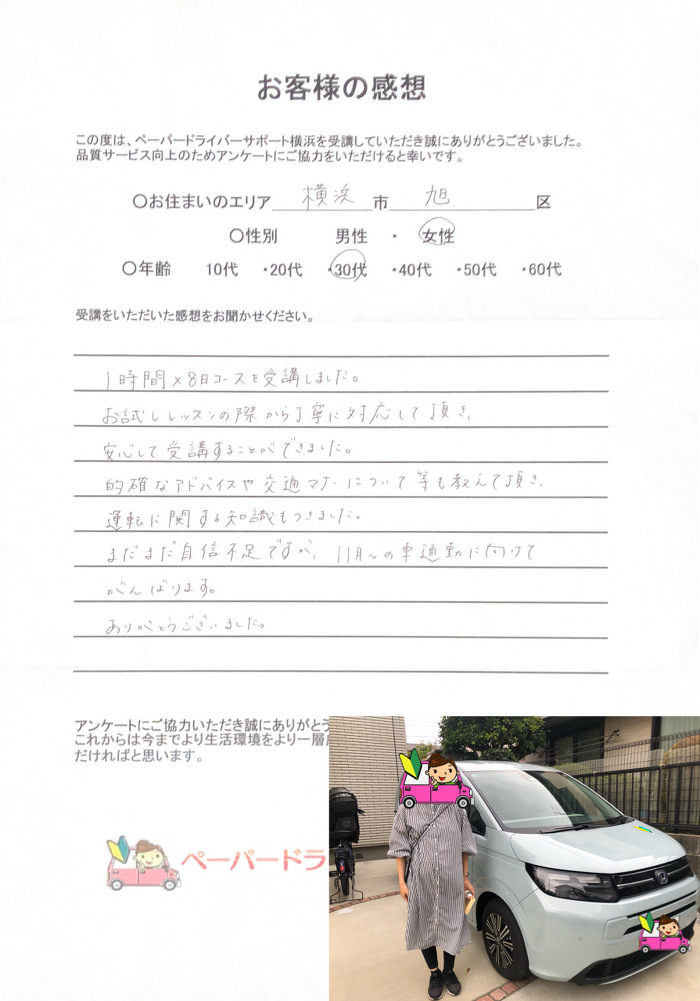 お客様の感想
この度は、ペーパードライバーサポート横浜を受講していただき誠にありがとうございました。
品質サービス向上のためアンケートにご協力をいただけると幸いです。
〇お住まいのエリア 横浜 市 旭 区
〇性別 男性 ・ 女性
〇年齢 10代 ・20代 ・30代 ・40代 ・50代 ・60代
受講をいただいた感想をお聞かせください。
1時間×8日コースを受講しました。
お試しレッスンの際から丁寧に対応して頂き、
安心して受講することができました。
的確なアドバイスや交通マナーについて等も教えて頂き、
運転に関する知識もつきました。
まだまだ自信不足ですが、11月〜の車通勤に向けて
がんばります。
ありがとうございました。
アンケートにご協力いただき誠にありがとう
これからは今までより生活環境をより一層
だければと思います。
ペーパードラ